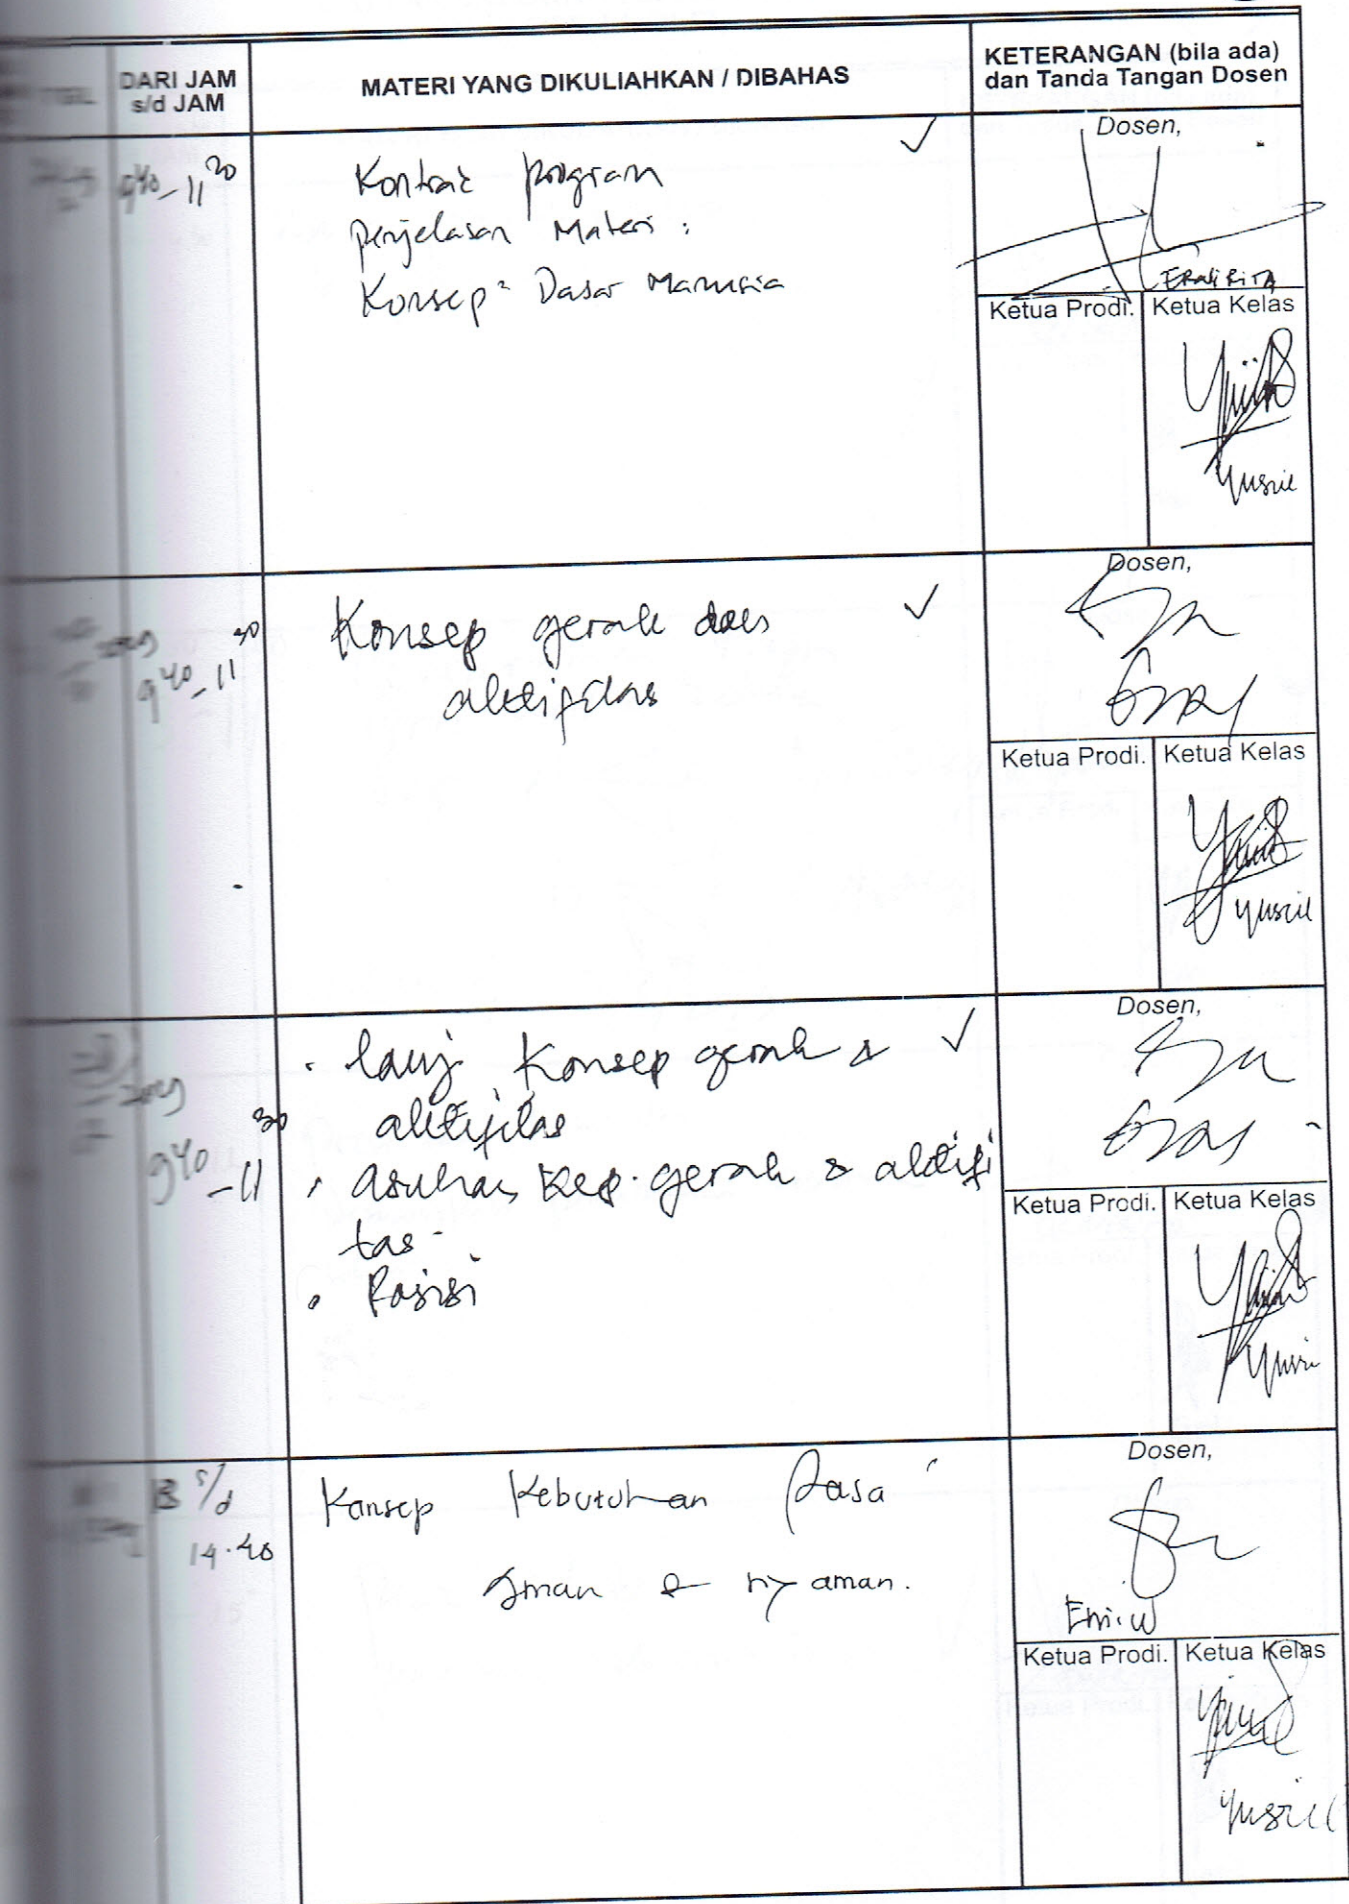 TGL
DARI JAM
s/d JAM
MATERI YANG DIKULIAHKAN / DIBAHAS
KETERANGAN (bila ada)
dan Tanda Tangan Dosen
9⁴⁰-11³⁰
Kontrak program
Penjelasan Materi :
Konsep² Dasar Manusia
Dosen,
Ketua Prodi.
Ketua Kelas
Yusril
9⁴⁰-11³⁰
Konsep gerak dan
aktifitas
Dosen,
Ketua Prodi.
Ketua Kelas
Yusril
9⁴⁰-11³⁰
. lanj. Konsep gerak &
aktifitas
. asuhan kep. gerak & aktifi
tas.
. Posisi
Dosen,
Ketua Prodi.
Ketua Kelas
13 s/d
14.40
Konsep Kebutuhan Rasa
Aman & nyaman.
Dosen,
Erni.W
Ketua Prodi.
Ketua Kelas
Yusril